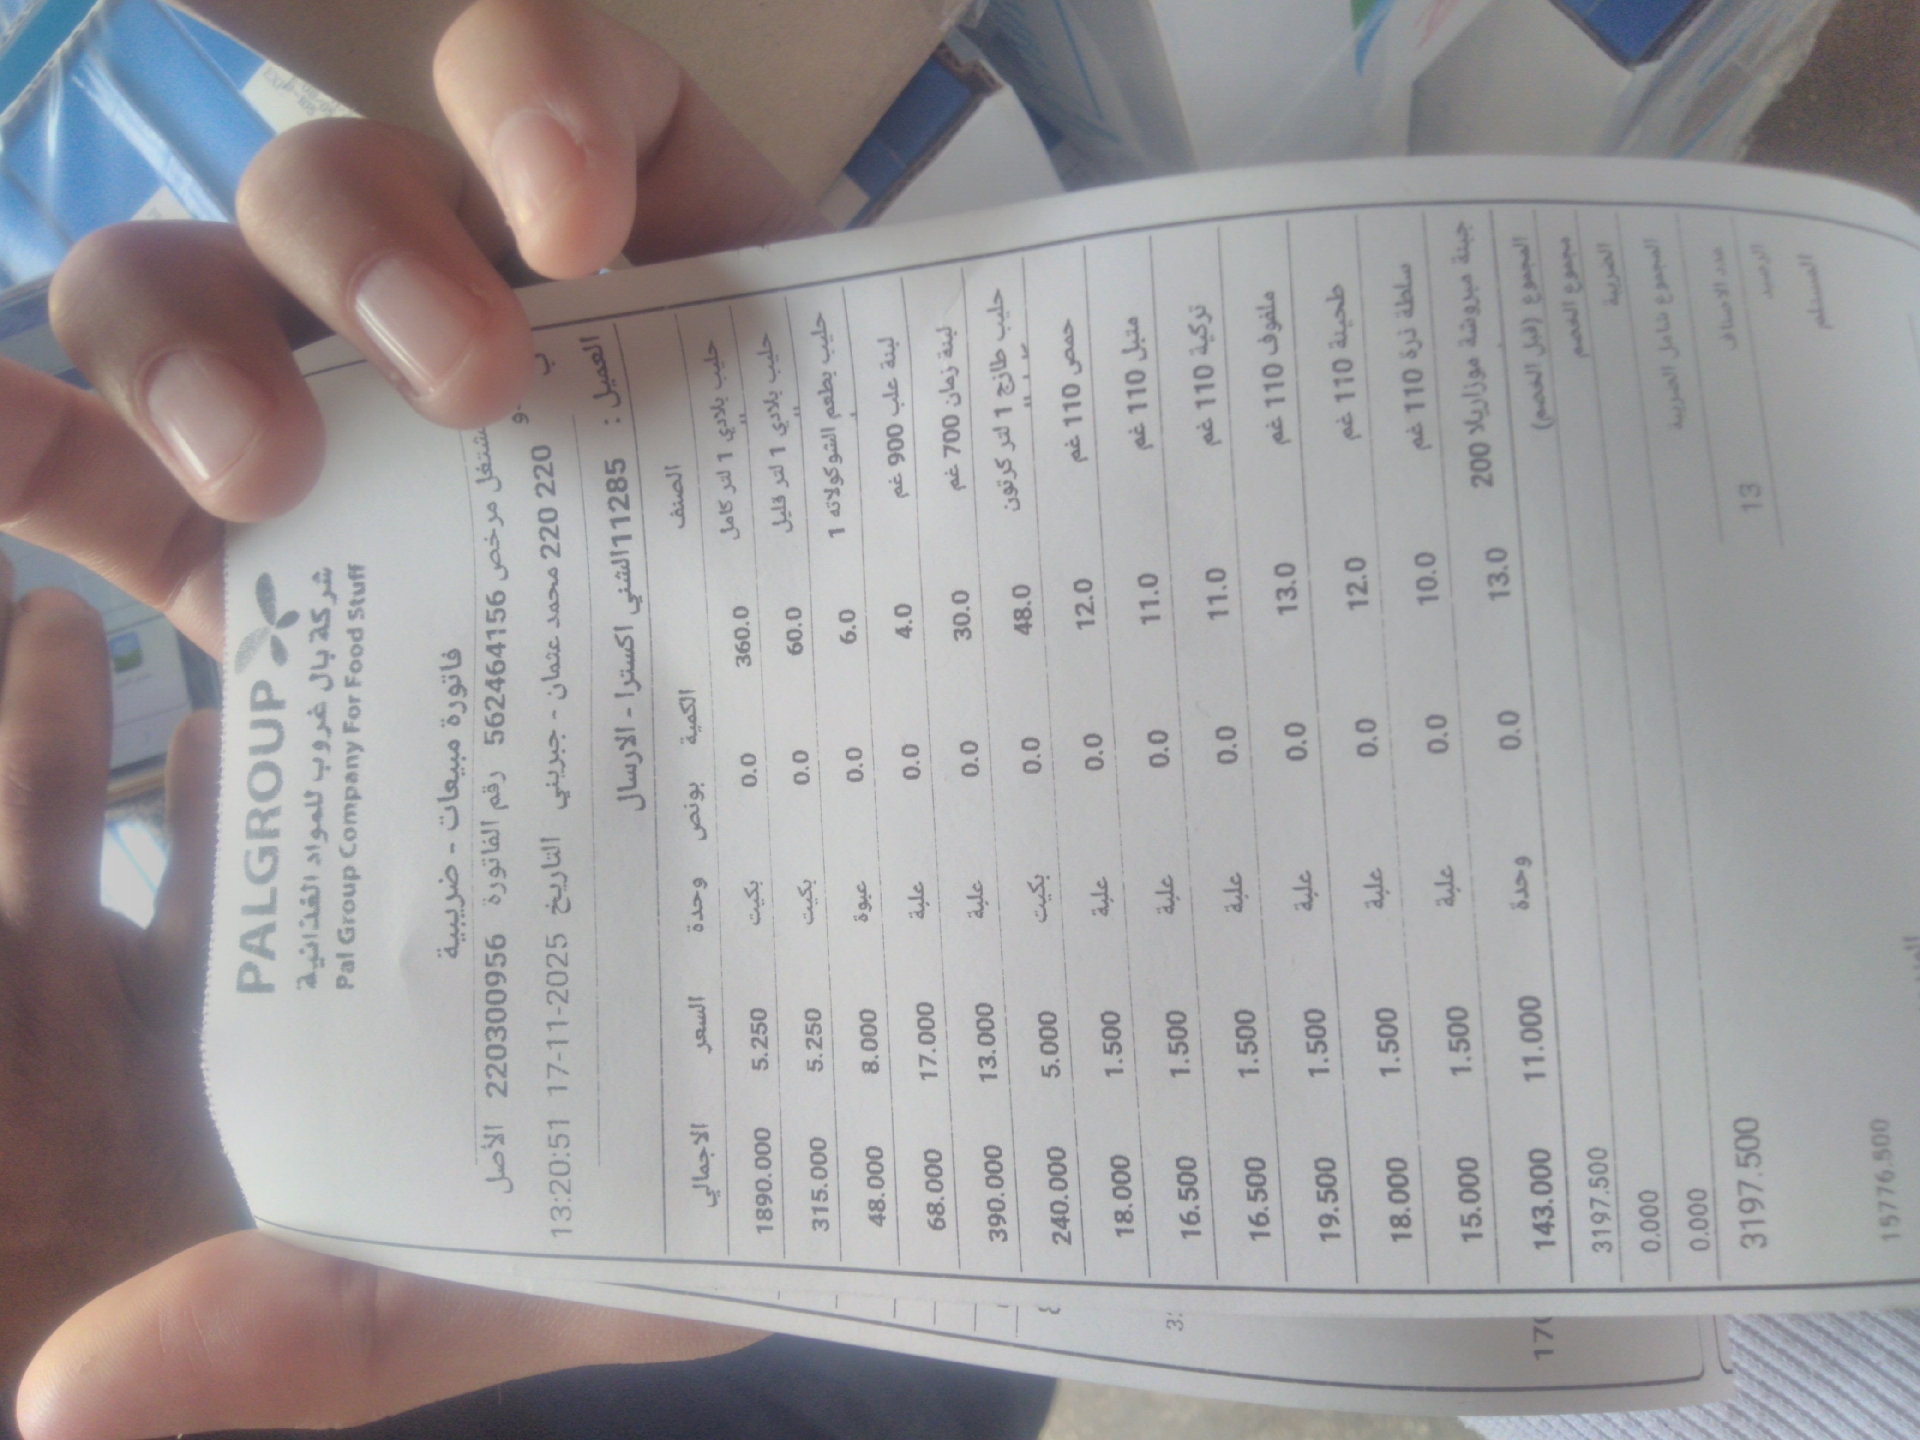 PALGROUP
شركة بال غروب للمواد الغذائية
Pal Group Company For Food Stuff
فاتورة مبيعات - ضريبية
مشتغل مرخص 562464156 رقم الفاتورة 220300956 الأصل
220 220 محمد عثمان - جبريني التاريخ 17-11-2025 13:20:51
العميل : 11285الشني اكسترا - الارسال
الصنف الكمية بونص وحدة السعر الاجمالي
حليب بلادي 1 لتر كامل 360.0 0.0 بكيت 5.250 1890.000
حليب بلادي 1 لتر قليل 60.0 0.0 بكيت 5.250 315.000
حليب بطعم الشوكولاته 1 6.0 0.0 عبوة 8.000 48.000
لبنة علب 900 غم 4.0 0.0 علبة 17.000 68.000
لبنة زمان 700 غم 30.0 0.0 علبة 13.000 390.000
حليب طازج 1 لتر كرتون 48.0 0.0 بكيت 5.000 240.000
حمص 110 غم 12.0 0.0 علبة 1.500 18.000
متبل 110 غم 11.0 0.0 علبة 1.500 16.500
تركية 110 غم 11.0 0.0 علبة 1.500 16.500
ملفوف 110 غم 13.0 0.0 علبة 1.500 19.500
طحينة 110 غم 12.0 0.0 علبة 1.500 18.000
سلطة ذرة 110 غم 10.0 0.0 علبة 1.500 15.000
جبنة مبروشة موزاريلا 200 13.0 0.0 وحدة 11.000 143.000
المجموع (قبل الخصم) 3197.500
مجموع الخصم 0.000
الضريبة 0.000
المجموع شامل الضريبة 3197.500
عدد الاصناف 13
الرصيد 15776.500
المستلم